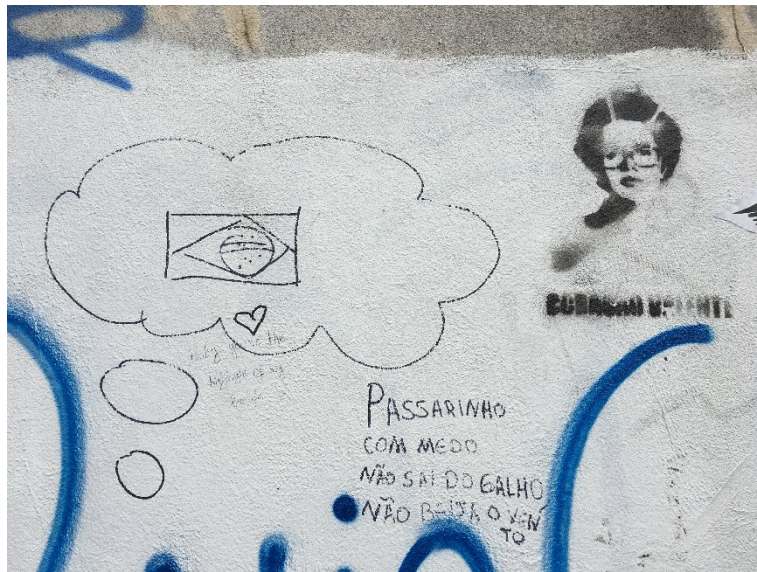 CORAÇÃO VALENTE
PASSARINHO
COM MEDO
NÃO SAI DO GALHO
NÃO BEIJA O VEN
TO